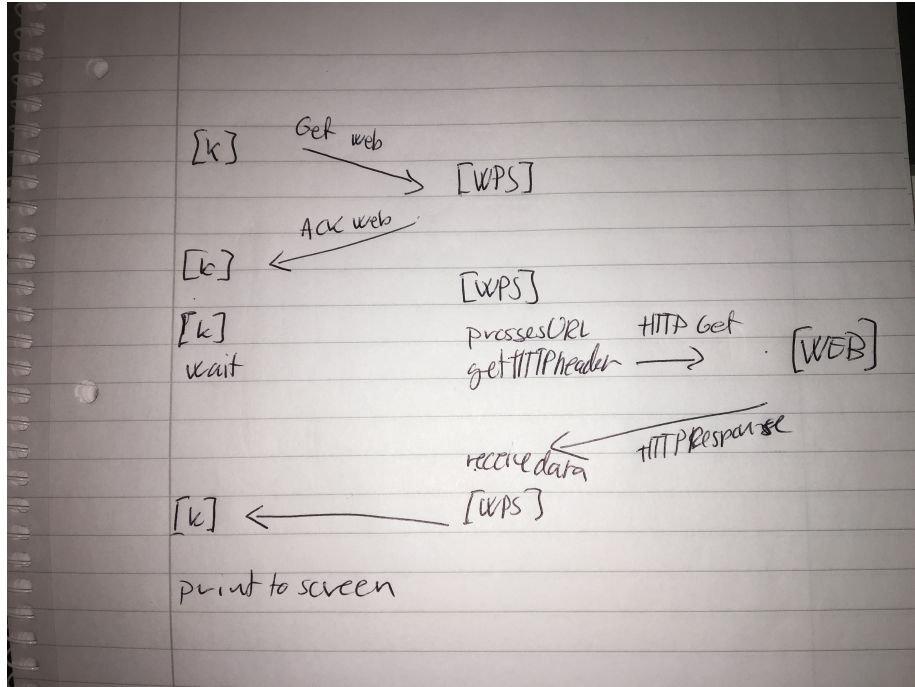 [k] Get web
[WPS]
ACK web
[k]
[WPS]
[k] prossesURL HTTP Get
wait getHTTPheader [WEB]
HTTPResponse
receivedata
[k] [WPS]
print to screen